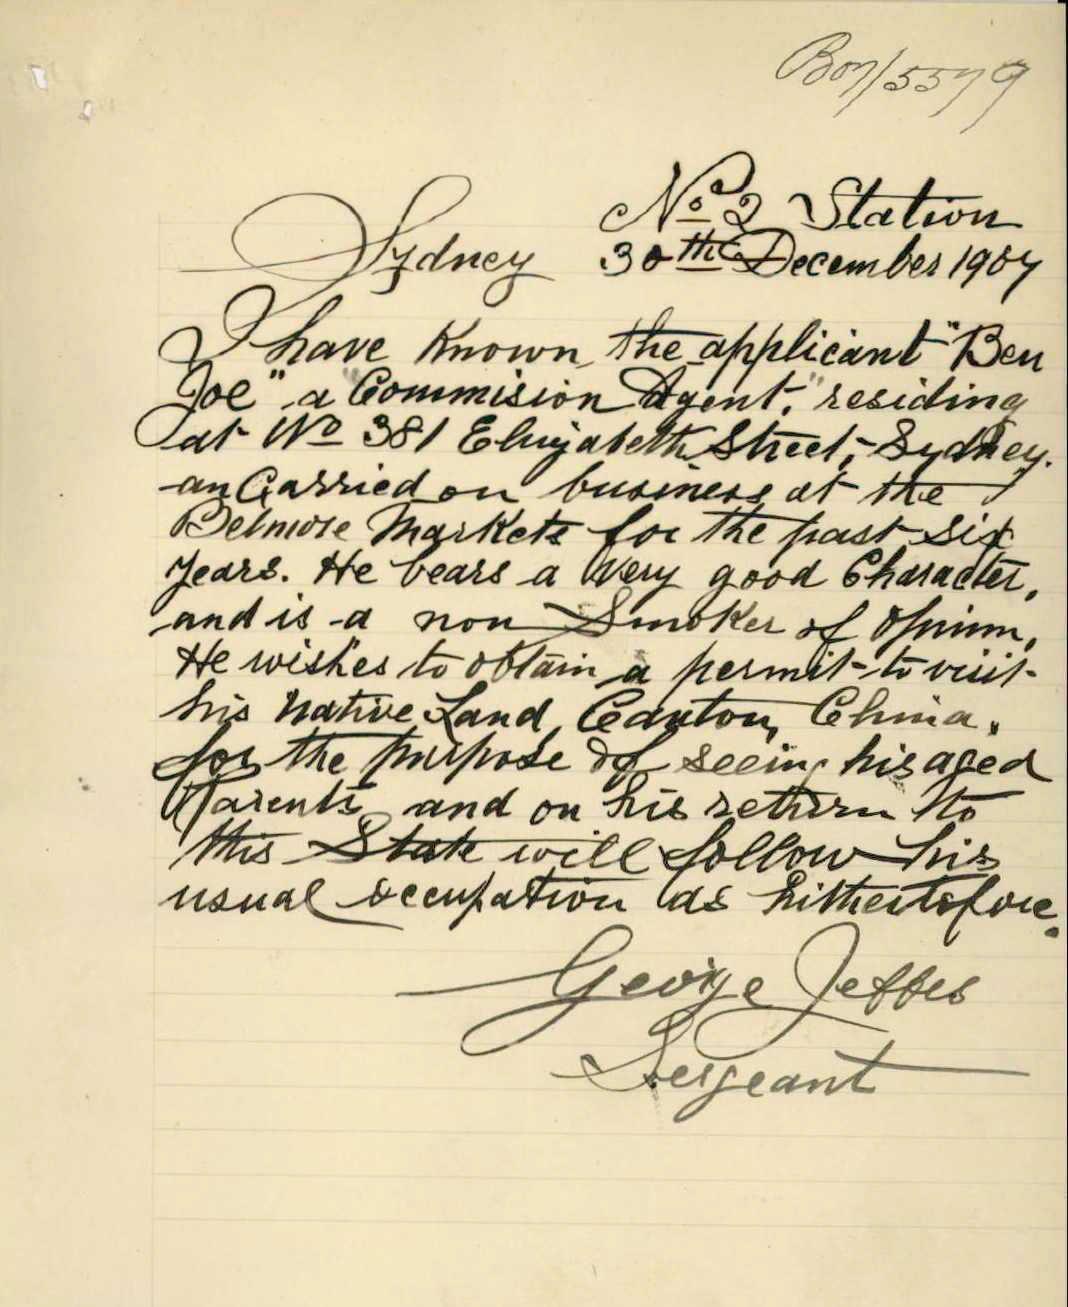 B07/5579
No 2 Station
Sydney 30th December 1907
I have known the applicant "Ben
Joe" a "Commision Agent," residing
at No 381 Elizabeth Street, Sydney.
an Carried on business at the
Belmore Markets for the past six
years. He bears a very good Character,
and is a non Smoker of Opium.
He wishes to obtain a permit to visit
his Native Land, Canton, China,
for the purpose of seeing his aged
Parents, and on his return to
this State will follow his
usual occupation as hithertofore.
George Jeffes
Sergeant